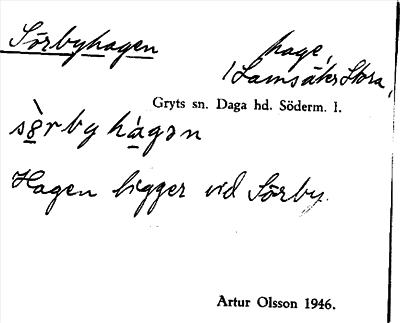 Sörbyhagen
hage,
/Lamsäter Stora,
Gryts sn. Daga hd. Söderm. l.
sö̀rbyhágən
Hagen ligger vid Sörby.
Artur Olsson 1946.